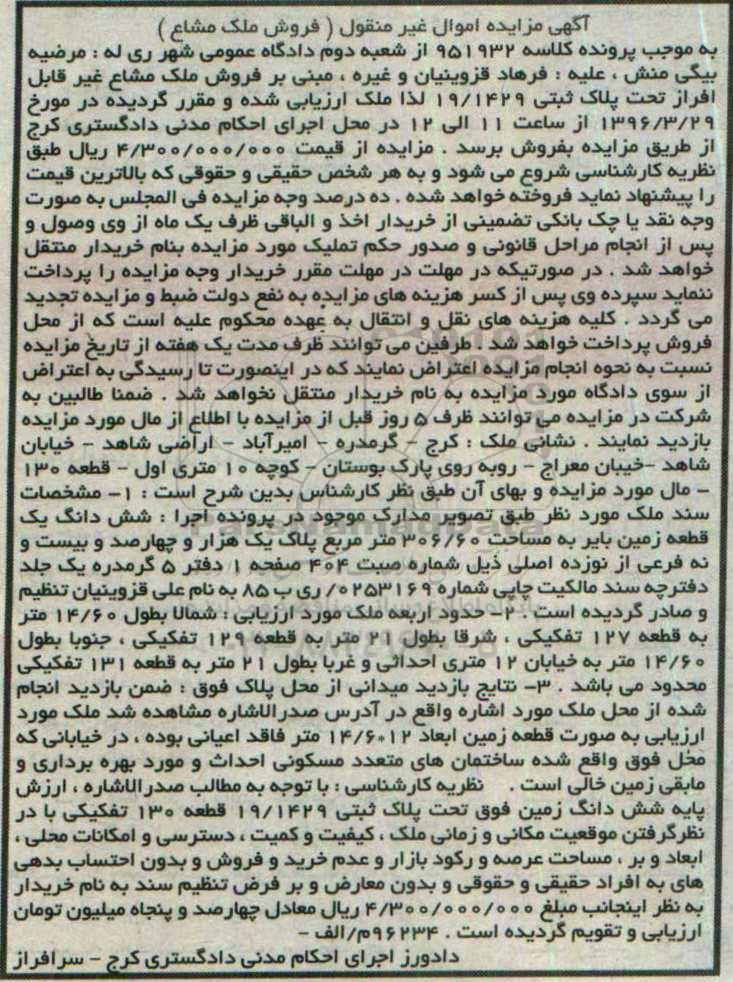 آگهی مزایده اموال غیر منقول ( فروش ملک مشاع )
به موجب پرونده کلاسه ۹۵۱۹۳۲ از شعبه دوم دادگاه عمومی شهر ری له : مرضیه
بیگی منش ، علیه : فرهاد قزوینیان و غیره ، مبنی بر فروش ملک مشاع غیر قابل
افراز تحت پلاک ثبتی ۱۹/۱۴۲۹ لذا ملک ارزیابی شده و مقرر گردیده در مورخ
۱۳۹۶/۳/۲۹ از ساعت ۱۱ الی ۱۲ در محل اجرای احکام مدنی دادگستری کرج
از طریق مزایده بفروش برسد . مزایده از قیمت ۴/۳۰۰/۰۰۰/۰۰۰ ریال طبق
نظریه کارشناسی شروع می شود و به هر شخص حقیقی و حقوقی که بالاترین قیمت
را پیشنهاد نماید فروخته خواهد شد . ده درصد وجه مزایده فی المجلس به صورت
وجه نقد یا چک بانکی تضمینی از خریدار اخذ و الباقی ظرف یک ماه از وی وصول و
پس از انجام مراحل قانونی و صدور حکم تملیک مورد مزایده بنام خریدار منتقل
خواهد شد . در صورتیکه در مهلت در مهلت مقرر خریدار وجه مزایده را پرداخت
ننماید سپرده وی پس از کسر هزینه های مزایده به نفع دولت ضبط و مزایده تجدید
می گردد . کلیه هزینه های نقل و انتقال به عهده محکوم علیه است که از محل
فروش پرداخت خواهد شد . طرفین می توانند ظرف مدت یک هفته از تاریخ مزایده
نسبت به نحوه انجام مزایده اعتراض نمایند که در اینصورت تا رسیدگی به اعتراض
از سوی دادگاه مورد مزایده به نام خریدار منتقل نخواهد شد . ضمنا طالبین به
شرکت در مزایده می توانند ظرف ۵ روز قبل از مزایده با اطلاع از مال مورد مزایده
بازدید نمایند . نشانی ملک : کرج - گرمدره - امیرآباد - اراضی شاهد - خیابان
شاهد -خیبان معراج - روبه روی پارک بوستان - کوچه ۱۰ متری اول - قطعه ۱۳۰
- مال مورد مزایده و بهای آن طبق نظر کارشناس بدین شرح است : ۱- مشخصات
سند ملک مورد نظر طبق تصویر مدارک موجود در پرونده اجرا : شش دانگ یک
قطعه زمین بایر به مساحت ۳۰۶/۶۰ متر مربع پلاک یک هزار و چهارصد و بیست و
نه فرعی از نوزده اصلی ذیل شماره صبت ۴۰۴ صفحه ۱ دفتر ۵ گرمدره یک جلد
دفترچه سند مالکیت چاپی شماره ۰۲۵۳۱۶۹/ ری ب ۸۵ به نام علی قزوینیان تنظیم
و صادر گردیده است . ۲- حدود اربعه ملک مورد ارزیابی : شمالا بطول ۱۴/۶۰ متر
به قطعه ۱۲۷ تفکیکی ، شرقا بطول ۲۱ متر به قطعه ۱۲۹ تفکیکی ، جنوبا بطول
۱۴/۶۰ متر به خیابان ۱۲ متری احداثی و غربا بطول ۲۱ متر به قطعه ۱۳۱ تفکیکی
محدود می باشد . ۳- نتایج بازدید میدانی از محل پلاک فوق : ضمن بازدید انجام
شده از محل ملک مورد اشاره واقع در آدرس صدرالاشاره مشاهده شد ملک مورد
ارزیابی به صورت قطعه زمین ابعاد ۱۲*۱۴/۶ متر فاقد اعیانی بوده ، در خیابانی که
محل فوق واقع شده ساختمان های متعدد مسکونی احداث و مورد بهره برداری و
مابقی زمین خالی است . نظریه کارشناسی : با توجه به مطالب صدرالاشاره ، ارزش
پایه شش دانگ زمین فوق تحت پلاک ثبتی ۱۹/۱۴۲۹ قطعه ۱۳۰ تفکیکی با در
نظرگرفتن موقعیت مکانی و زمانی ملک ، کیفیت و کمیت ، دسترسی و امکانات محلی ،
ابعاد و بر ، مساحت عرصه و رکود بازار و عدم خرید و فروش و بدون احتساب بدهی
های به افراد حقیقی و حقوقی و بدون معارض و بر فرض تنظیم سند به نام خریدار
به نظر اینجانب مبلغ ۴/۳۰۰/۰۰۰/۰۰۰ ریال معادل چهارصد و پنجاه میلیون تومان
ارزیابی و تقویم گردیده است . ۹۶۲۳۴م/الف -
دادورز اجرای احکام مدنی دادگستری کرج - سرافراز